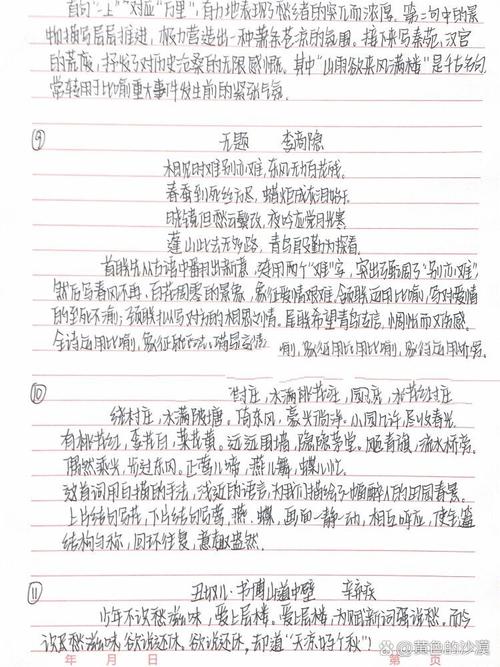 首句"一上"对应"万里",有力地表现了愁绪的突兀而浓厚。第二句中的景
物描写层层推进,极力营造出一种萧条苍凉的氛围。接下来写秦苑、汉宫
的荒废,抒发了对历史沧桑的无限感慨。其中"山雨欲来风满楼"是千古名句
常转用于比喻重大事件发生前的紧张气氛。
⑨ 无题 李商隐
相见时难别亦难,东风无力百花残。
春蚕到死丝方尽,蜡炬成灰泪始干。
晓镜但愁云鬓改,夜吟应觉月光寒
蓬山此去无多路,青鸟殷勤为探看。
首联先从古语中翻出新意,采用两个"难"字,突出强调了"别亦难"。
然后写春风不再、百花凋零的景象,象征爱情艰难。颔联运用比喻,写对爱情
的至死不渝;颈联拟写对方的相思之情。尾联希望青鸟送信,惆怅而又伤感。
全诗运用比喻、象征
⑩ 村庄,水满
绕村庄,水满陂塘。倚东风,豪兴徜徉。小园几许,尽收春光。
有桃花红,李花白,菜花黄。远远围墙,隐隐茅堂。飏青旗,流水桥旁。
偶然乘兴,步过东冈。正莺儿啼,燕儿舞,蝶儿忙。
这首词用白描的手法,浅近的语言,为我们描绘了一幅醉人的田园春景。
上片结句写花,下片结句写莺、燕、蝶,画面一静一动,相互呼应,使全篇
结构匀称,回环往复,意趣盎然。
11 丑奴儿·书博山道中壁 辛弃疾
少年不识愁滋味,爱上层楼。爱上层楼,为赋新词强说愁。而今
识尽愁滋味,欲说还休。欲说还休,却道"天凉好个秋"!
年 月 日 第 页
@黄色的沙漠